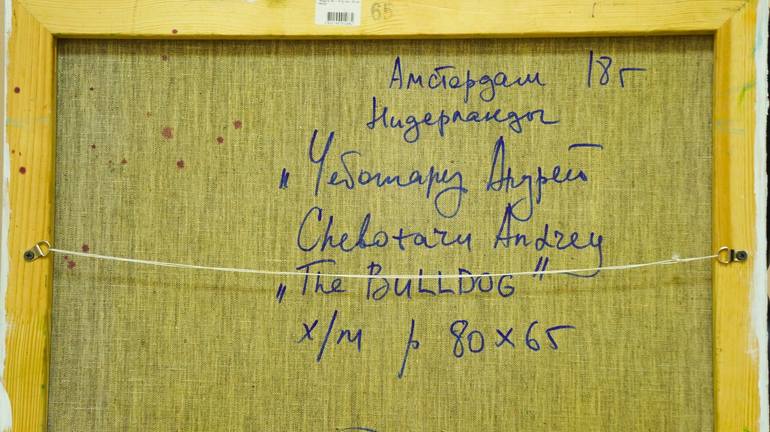 65
Амстердам 18г
Нидерланды
„ Чеботарь Андрей
Chebotaru Andrey
„The BULLDOG"
х/м р 80×65